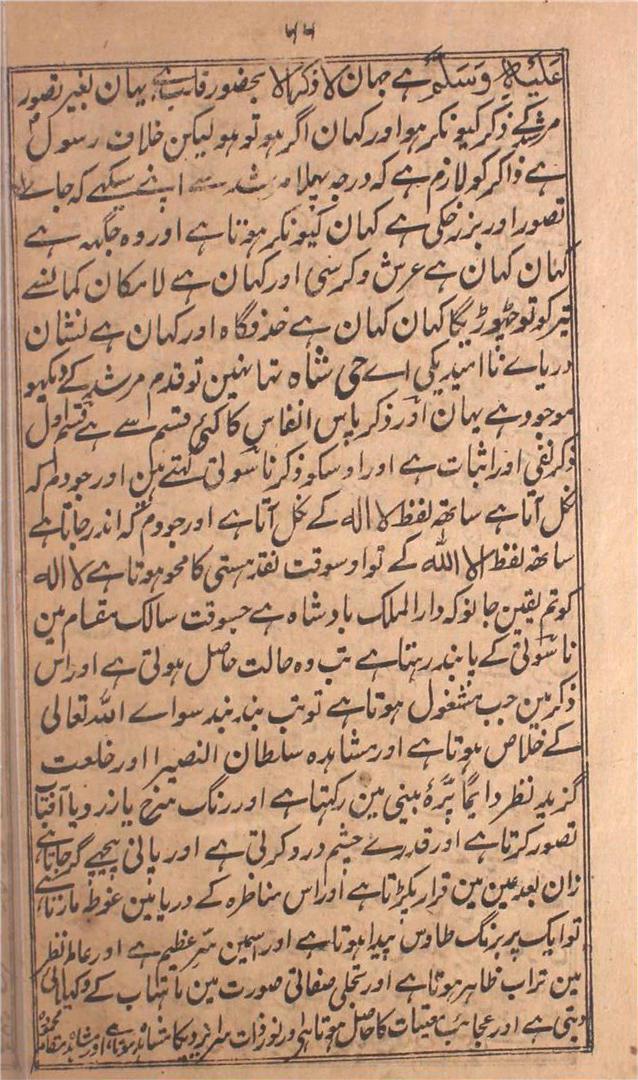 ٤٤
علیہ وسلم ہے جہان لا ذکر الا بحضور قلب ہے یہان بغیر تصور
مرشد کے ذکر کیونکر ہو اور کہان اگر ہو تو ہو لیکن خلاف رسول
ہے ذاکر کو لازم ہے کہ درجہ پہلا مرشد سے اپنے سیکہے کہ جاے
تصور اور برزخکی ہے کہان کیونکر ہوتا ہے اور وہ جگہہ ہے
کہان کہان ہے عرش و کرسی اور کہان ہے لا مکان کمانسے
تیر کو تو چہوڑیگا کہان کہان ہے خدفگاہ اور کہان ہے نشان
دریاے نا امیدیکی اے جی شاہ تہا نہین تو قدم مرشد کے دیکہو
موجود ہے یہان اور ذکر پاس انفاس کا کئی قسم سے ہے قسم اول
ذکر نفی اور اثبات ہے اور اوسکو ذکر ناسوتی کہتے ہین اور جو دم کہ
نکل آتا ہے ساتہہ لفظ لا الہ کے نکل آتا ہے اور جو دم کہ اندر جاتا ہے
ساتہہ لفظ الا اللہ کے تو اوسوقت نقد ہستی کا محو ہوتا ہے لا الہ
کو تم یقین جانو کہ دار الملک بادشاہ ہے جسوقت سالک مقام مین
ناسوتی کے پابند رہتا ہے تب وہ حالت حاصل ہوتی ہے اور اس
ذکر مین جب مشغول ہوتا ہے تو تب بند بند سواے اللہ تعالی
کے خلاص ہوتا ہے اور مشاہدہ سلطان النصیرا اور خلعت
گزید نظر دایما پرۂ بینی مین رکہتا ہے اور رنگ سرخ یا زرد یا آفتاب
تصور کرتا ہے اور قدرے چشم درد کرتی ہے اور پانی پیچہے گر جاتا ہے
زان بعد عین مین قرار پکڑتا ہے اور اس مناظرہ کے دریا مین غوطہ مارتا ہے
تو ایک پر برنگ طاوس پیدا ہوتا ہے اور اسمین سر عظیم ہے اور عالم نظر
مین تراب ظاہر ہوتا ہے اور تجلی صفاتی صورت مین ماہتاب کے دکہائی
دیتی ہے اور عجائب حاصل ہوتا ہے اور نور ذات مشاہدہ ہوتا ہے اور